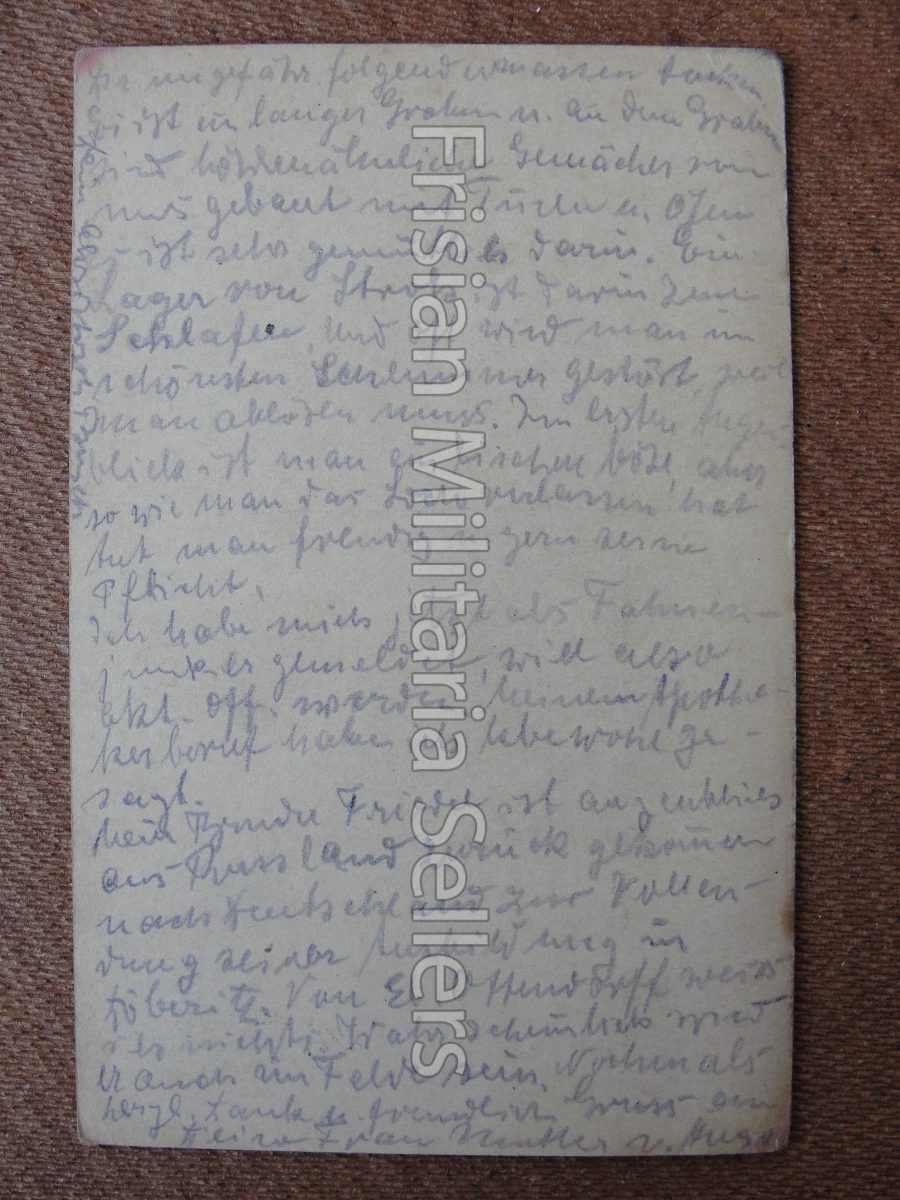 ungefähr folgendermassen
ist ein langer Graben u. an dem Graben
sind höhlenähnliche Gemächer von
uns gebaut mit Türen u. Ofen
ist sehr gemütlich darin. Ein
Lager von Stroh ist darin zum
Schlafen. Und oft wird man im
schönsten Schlummer gestört, weil
man ablösen muss. Im ersten Augen-
blick ist man ein bischen böse, aber
sowie man das Loch verlassen hat
tut man freudig u. gern seine
Pflicht.
Ich habe mich jetzt als Fahnen-
junker gemeldet, will also
akt. Off. werden, meinem Apothe-
kerberuf habe ich lebewohl ge-
sagt.
Mein Bruder Friedel ist augenblickl
aus Russland zurück gekommen
nach Deutschland zur Vollen-
dung seiner Ausbildung in
Döberitz. Von Ottendorff weiss
ich nichts. Wahrscheinlich wird
er auch im Felde sein. Nochmals
herzl. Dank u. freundlich Gruss an
Deine Frau Mutter u.
Frisian Militaria Sellers